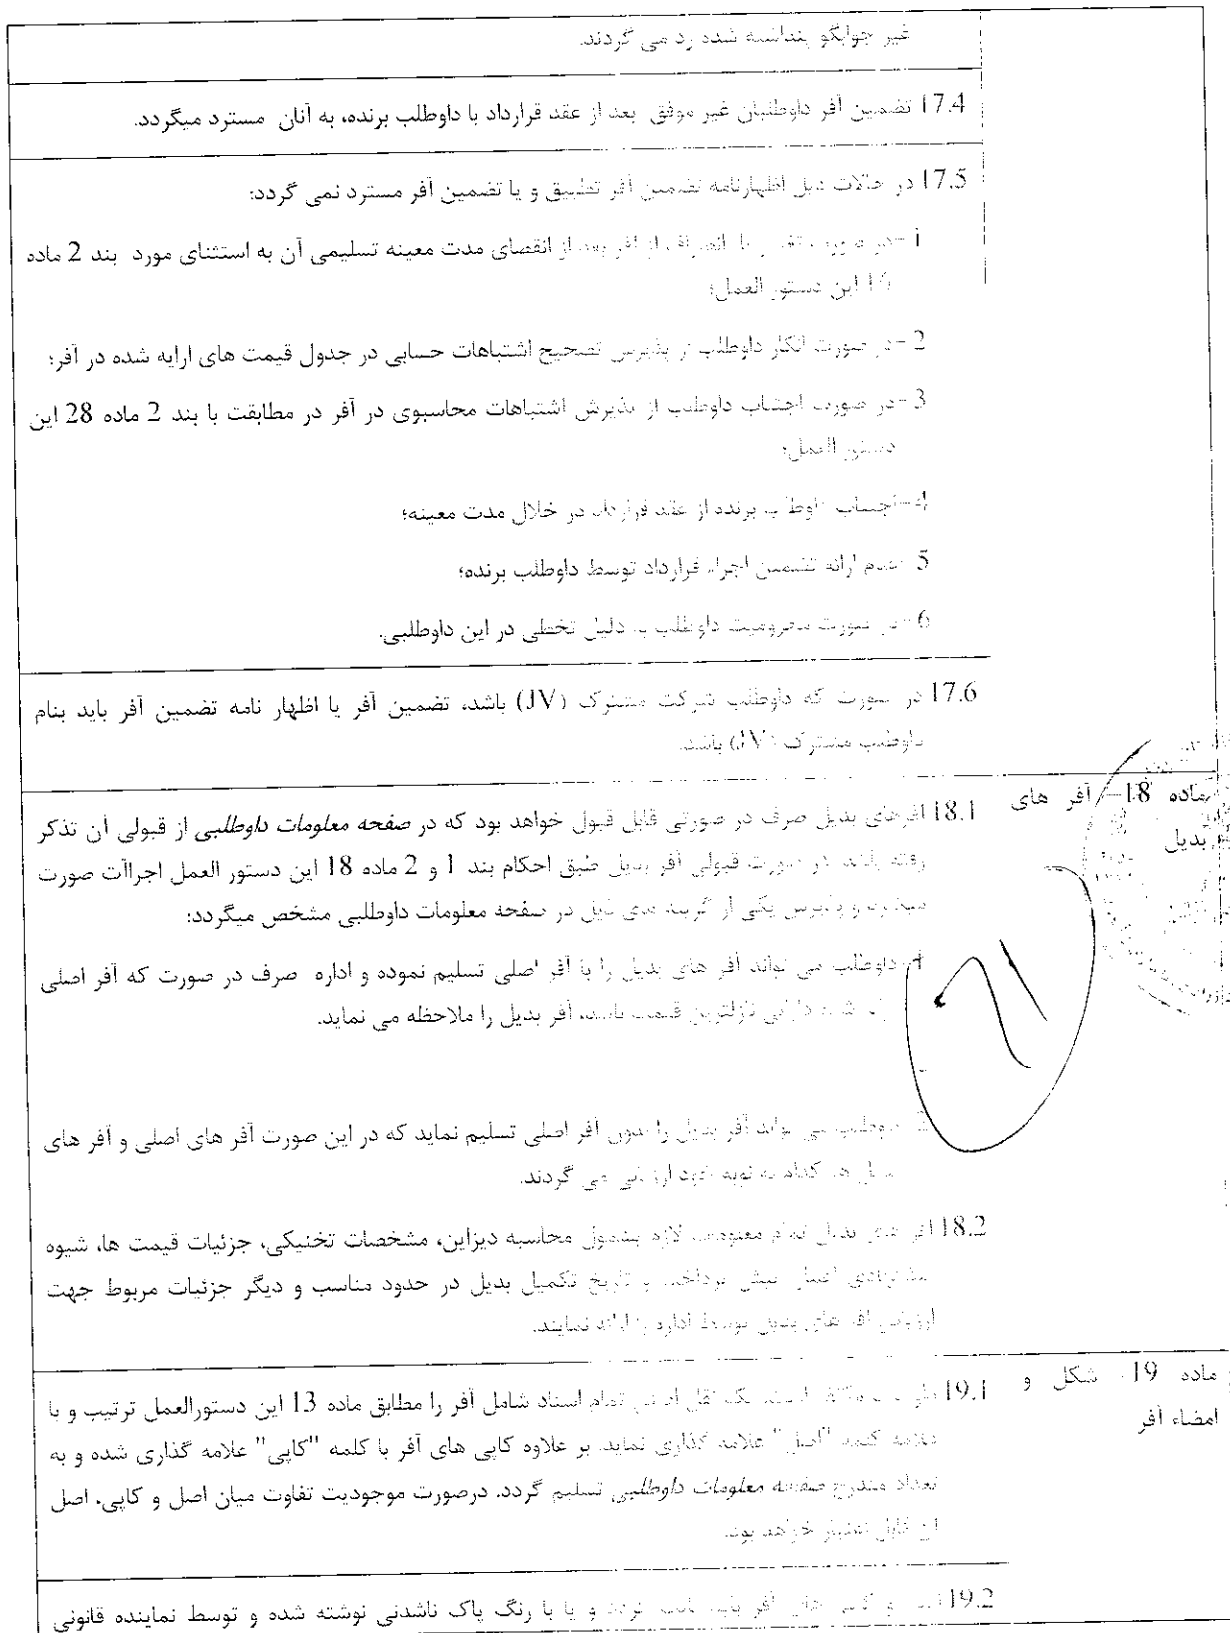 غیر جوابگو پنداشته شده رد می گردند.
17.4 تضمین آفر داوطلبان غیر موفق بعد از عقد قرارداد با داوطلب برنده، به آنان مسترد میگردد.
17.5 در حالات ذیل اظهارنامه تضمین آفر تطبیق و یا تضمین آفر مسترد نمی گردد:
1- در صورت تغییر یا انصراف از آفر بعد از انقضای مدت معینه تسلیمی آن به استثنای مورد بند 2 ماده
16 این دستور العمل؛
2- در صورت انکار داوطلب از پذیرش تصحیح اشتباهات حسابی در جدول قیمت های ارایه شده در آفر؛
3- در صورت اجتناب داوطلب از پذیرش اشتباهات محاسبوی در آفر در مطابقت با بند 2 ماده 28 این
دستور العمل؛
4- اجتناب داوطلب برنده از عقد قرارداد در خلال مدت معینه؛
5- عدم ارائه تضمین اجراء قرارداد توسط داوطلب برنده؛
6- در صورت محرومیت داوطلب به دلیل تخطی در این داوطلبی.
17.6 در صورت که داوطلب شرکت مشترک (JV) باشد، تضمین آفر یا اظهار نامه تضمین آفر باید بنام
داوطلب مشترک (JV) باشد.
ماده 18- آفر های
بدیل
18.1 آفرهای بدیل صرف در صورتی قابل قبول خواهد بود که در صفحه معلومات داوطلبی از قبولی آن تذکر
رفته باشد. در صورت قبولی آفر بدیل طبق احکام بند 1 و 2 ماده 18 این دستور العمل اجراآت صورت
میگیرد و پذیرش یکی از گزینه های ذیل در صفحه معلومات داوطلبی مشخص میگردد:
1- داوطلب می تواند آفر های بدیل را با آفر اصلی تسلیم نموده و اداره صرف در صورت که آفر اصلی
شده دارای نازلترین قیمت باشد، آفر بدیل را ملاحظه می نماید.
داوطلب می تواند آفر بدیل را بدون آفر اصلی تسلیم نماید که در این صورت آفر های اصلی و آفر های
بدیل هر کدام به نوبه خود ارزیابی می گردند.
18.2 آفر های بدیل تمام معلومات لازم بشمول محاسبه دیزاین، مشخصات تخنیکی، جزئیات قیمت ها، شیوه
پیشنهادی اعمار، پیش پرداخت یا تاریخ تکمیل بدیل در حدود مناسب و دیگر جزئیات مربوط جهت
ارزیابی آفر های بدیل توسط اداره را ارائه نمایند.
ماده 19- شکل و
امضاء آفر
19.1 داوطلب مکلف است، یک نقل اصلی تمام اسناد شامل آفر را مطابق ماده 13 این دستورالعمل ترتیب و با
علامه کلمه "اصل" علامه گذاری نماید. بر علاوه کاپی های آفر با کلمه "کاپی" علامه گذاری شده و به
تعداد مندرج صفحه معلومات داوطلبی تسلیم گردد. درصورت موجودیت تفاوت میان اصل و کاپی، اصل
آن قابل اعتبار خواهد بود.
19.2 اصل و کاپی های آفر باید تایپ گردد و یا با رنگ پاک ناشدنی نوشته شده و توسط نماینده قانونی